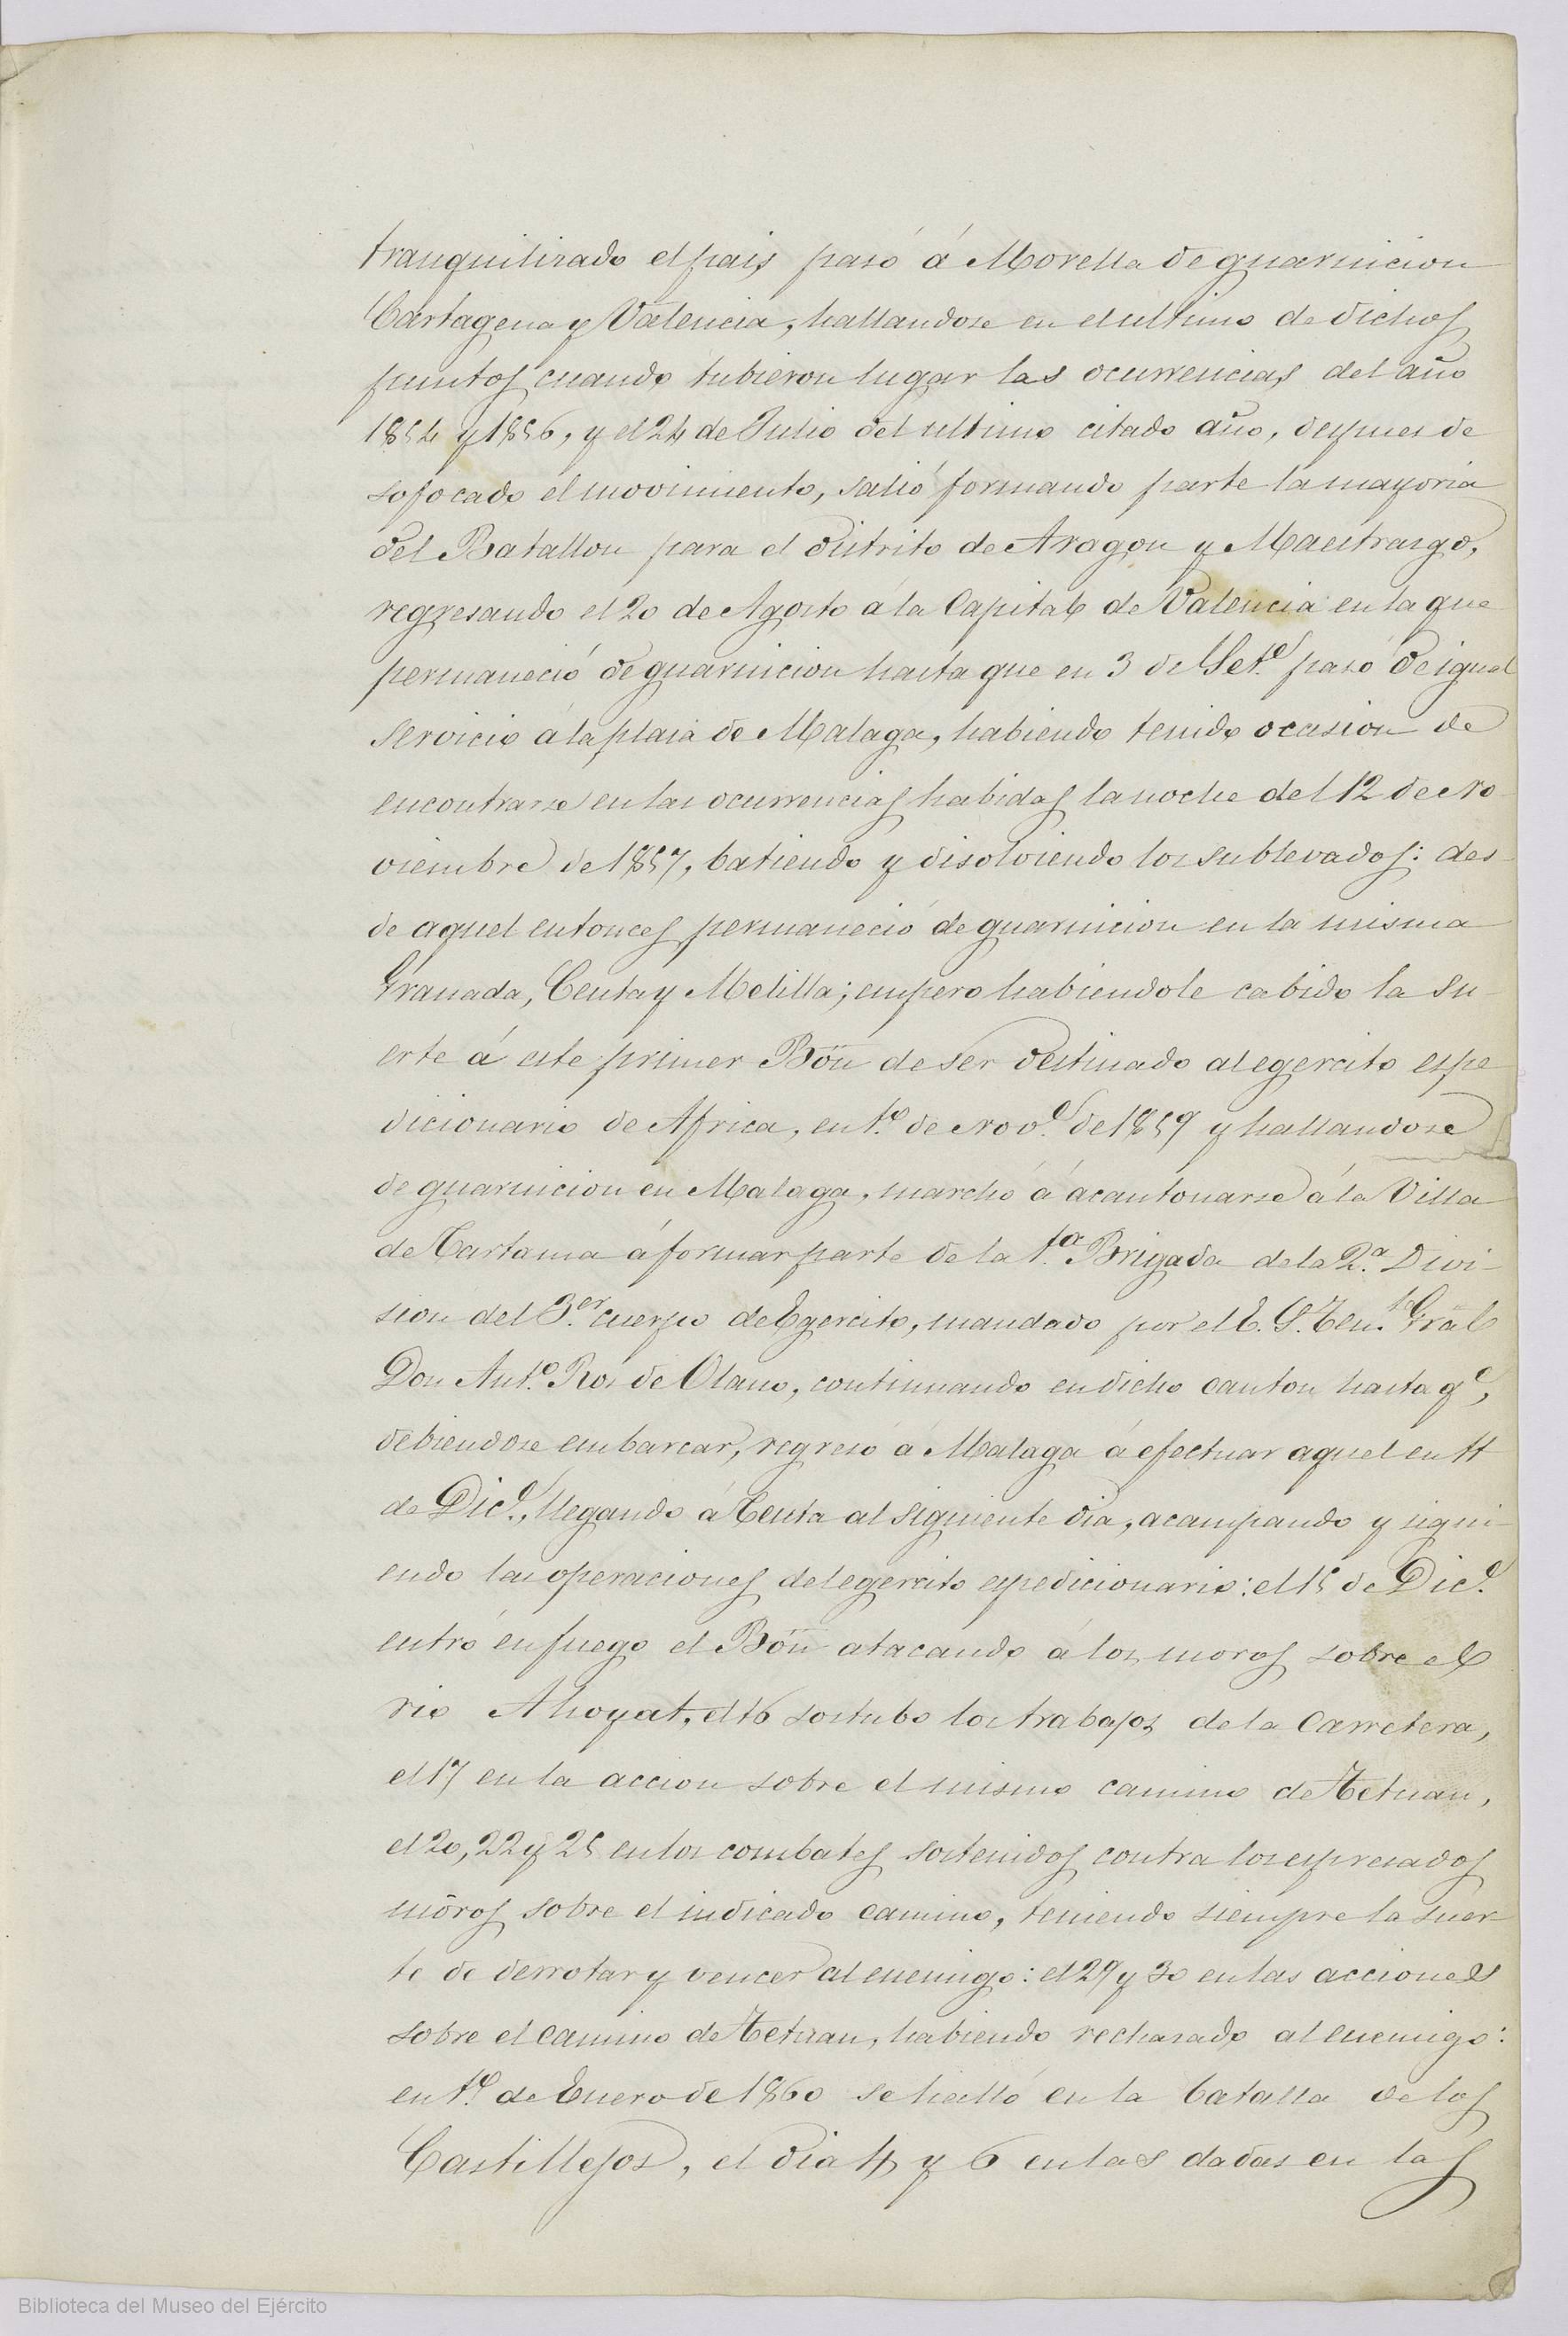 tranquilizado el pais pasó á Morella de guarnicion
Cartagena y Valencia, hallandose en el ultimo de dichos
puntos cuando tubieron lugar las ocurrencias del año
1854 y 1856, y el 24 de Julio del ultimo citado año, despues de
sofocado el movimiento, salió formando parte la mayoria
del Batallon para el distrito de Aragon y Maestrazgo,
regresando el 20 de Agosto á la Capital de Valencia en la que
permaneció de guarnicion hasta que en 3 de Set.e pasó de igual
servicio á la plaza de Malaga, habiendo tenido ocasion de
encontrarse en las ocurrencias habidas la noche del 12 de No-
viembre de 1857, batiendo y disolviendo los sublevados: des-
de aquel entonces permaneció de guarnicion en la misma
Granada, Ceuta y Melilla; empero habiendole cabido la su-
erte á este primer Bôn de ser destinado al egercito espe
dicionario de Africa, en 1.o de Nov.e de 1859 y hallandose
de guarnicion en Malaga, marchó á acantonarse á la Villa
de Cartama á formar parte de la 1.a Brigada de la 2.a Divi-
sion del 3.er cuerpo de Egercito, mandado por el E. S. Ten.te Gral
Don Ant.o Ros de Olano, continuando en dicho canton hasta q.e,
debiendose embarcar, regresó á Malaga á efectuar aquel en 11
de Dic.e, llegando á Ceuta al siguiente dia, acampando y sigui-
endo las operaciones del egercito espedicionario: el 15 de Dic.e
entró en fuego el Bôn atacando á los moros sobre el
rio Ahoyat, el 16 sostubo los trabajos de la Carretera,
el 17 en la accion sobre el mismo camino de Tetuan,
el 20, 22 y 25 en los combates sostenidos contra los espresados
moros sobre el indicado camino, teniendo siempre la suer-
te de derrotar y vencer al enemigo: el 29 y 30 en las acciones
sobre el camino de Tetuan, habiendo rechasado al enemigo:
en 1.o de Enero de 1860 se halló en la batalla de los
Castillejos, el dia 4 y 6 en las dadas en las
Biblioteca del Museo del Ejército